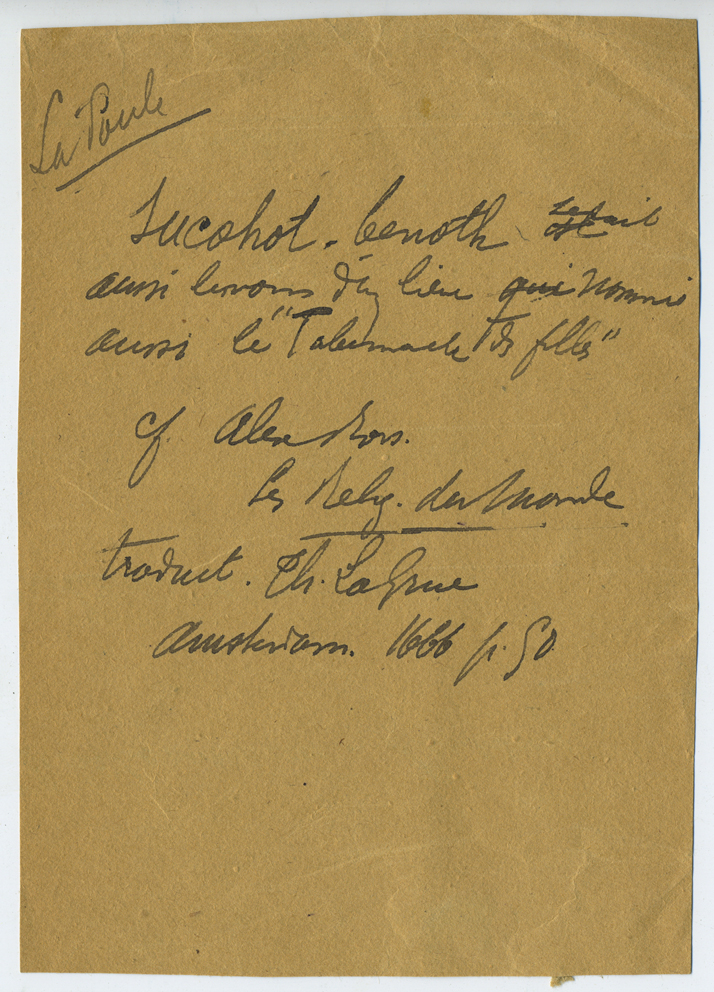 La Poule
Sucohot-benoth serait
aussi le nom d'un lieu qui nommé
aussi le "Tabernacle des filles"
cf. Alex Ross.
Les Relig. du Monde
traduct. Th. La Grue
Amsterdam. 1666 p. 50